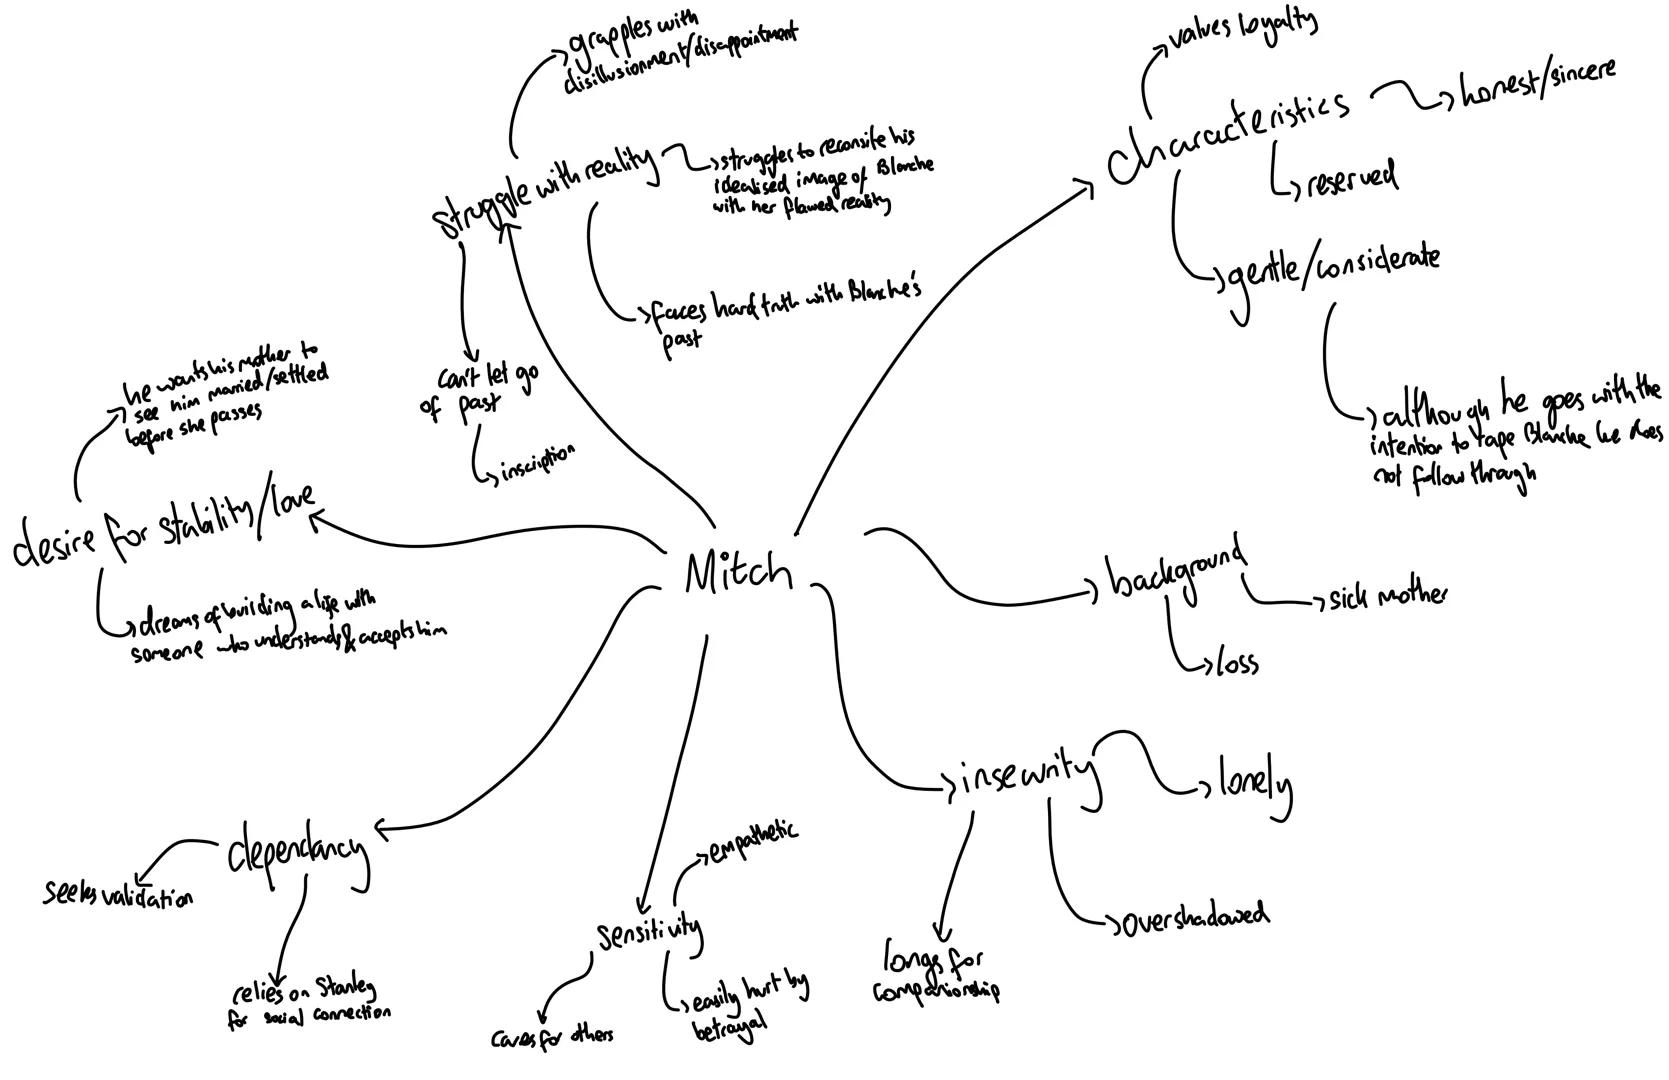 grapples with
disillusionment/disappointment
struggle with reality
struggles to reconsile his
idealised image of Blanche
with her flawed reality
faces hard truth with Blanche's
past
can't let go
of past
inscription
values loyalty
characteristics
honest/sincere
reserved
gentle/considerate
although he goes with the
intention to rape Blanche he does
not follow through
he wants his mother to
see him married/settled
before she passes
desire for stability/love
dreams of building a life with
someone who understands & accepts him
Mitch
background
sick mother
loss
insecurity
lonely
overshadowed
longs for
companionship
dependancy
seeks validation
relies on Stanley
for social connection
sensitivity
empathetic
easily hurt by
betrayal
cares for others